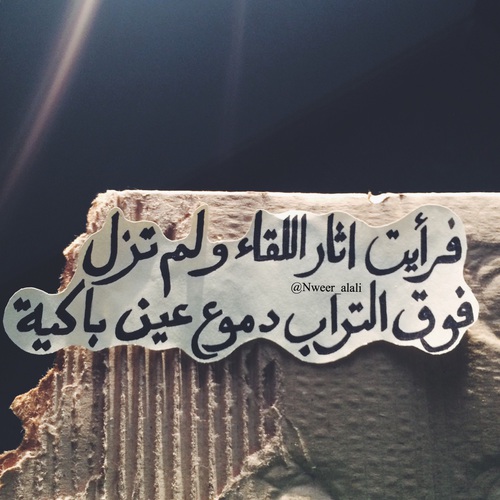 فرأيت اثار اللقاء ولم تزل
@Nweer_alali
فوق التراب دموع عين باكية